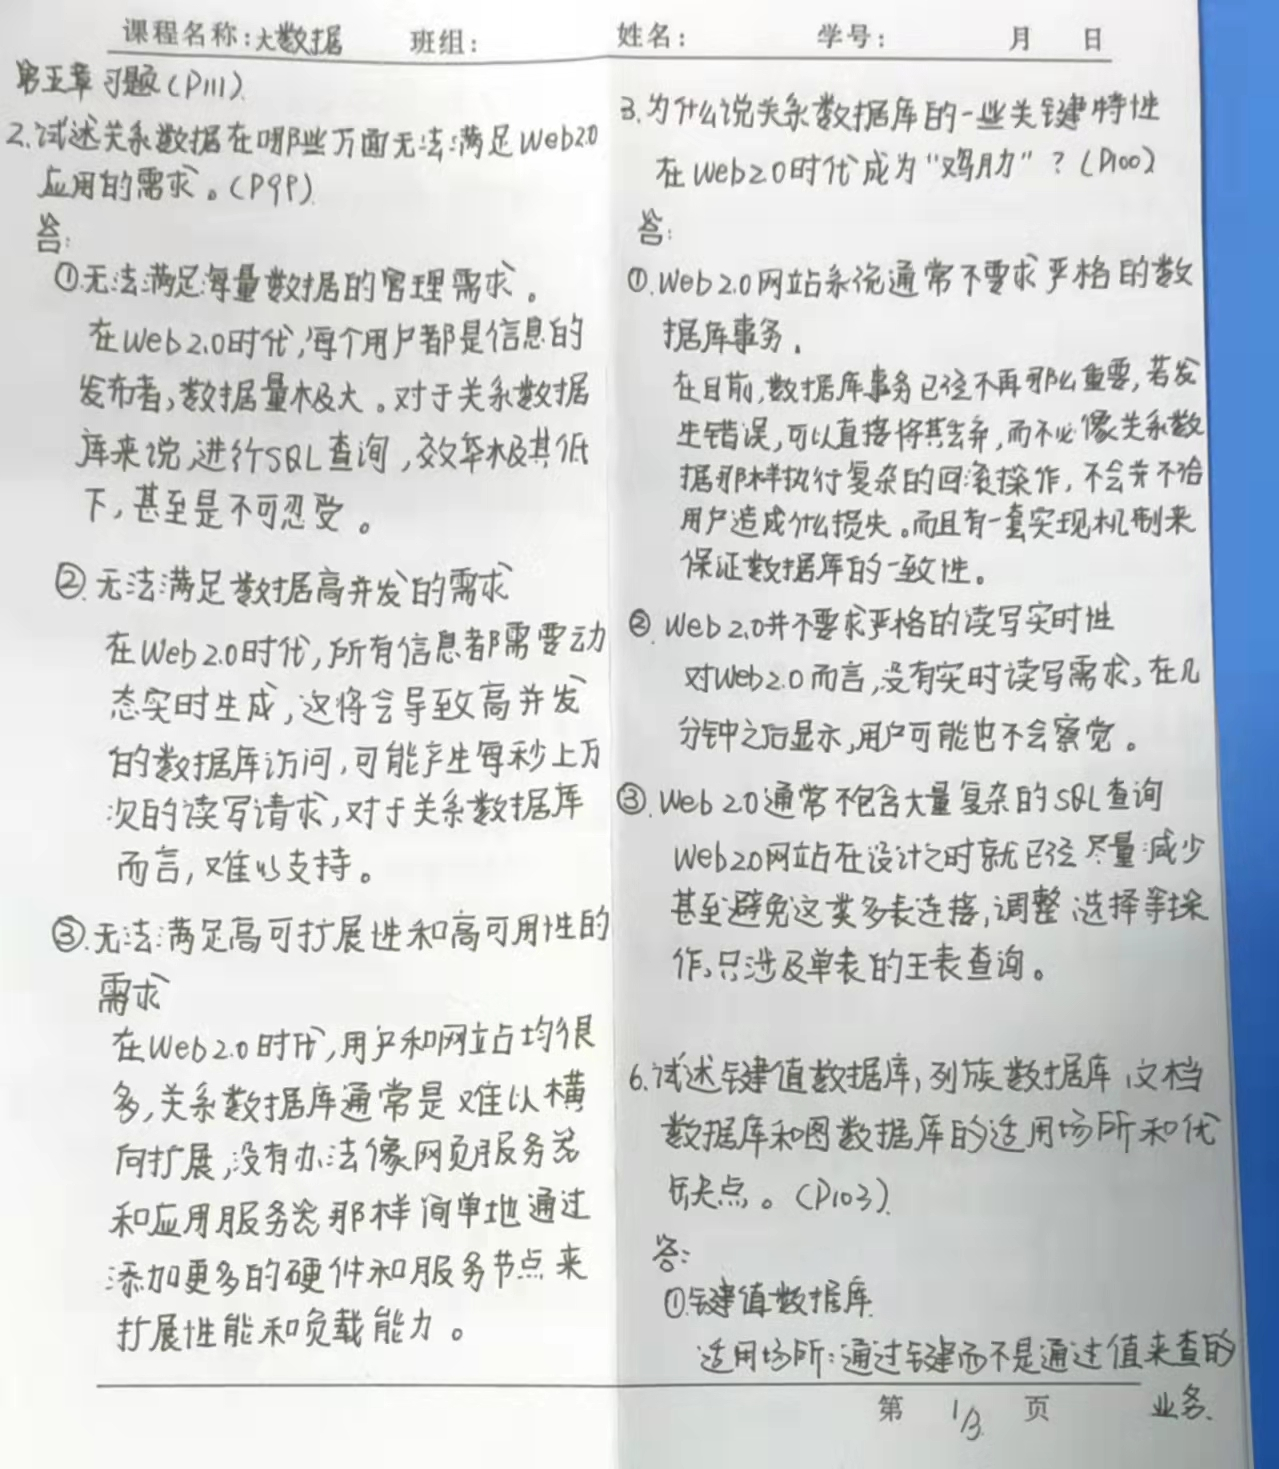 课程名称:大数据 班组: 姓名: 学号: 月 日
第五章习题(P111).
2.试述关系数据在哪些方面无法满足Web2.0
应用的需求。(P99).
答:
①无法满足海量数据的管理需求。
在Web2.0时代,每个用户都是信息的
发布者,数据量极大。对于关系数据
库来说,进行SQL查询,效率极其低
下,甚至是不可忍受。
②.无法满足数据高并发的需求
在Web2.0时代,所有信息都需要动
态实时生成,这将会导致高并发
的数据库访问,可能产生每秒上万
次的读写请求,对于关系数据库
而言,难以支持。
③.无法满足高可扩展性和高可用性的
需求
在Web2.0时代,用户和网站均很
多,关系数据库通常是难以横
向扩展,没有办法像网页服务器
和应用服务器那样简单地通过
添加更多的硬件和服务节点来
扩展性能和负载能力。
3.为什么说关系数据库的一些关键特性
在Web2.0时代成为“鸡肋”?(P100)
答:
①.Web2.0网站系统通常不要求严格的数
据库事务.
在目前,数据库事务已经不再那么重要,若发
生错误,可以直接将其丢弃,而不必像关系数
据那样执行复杂的回滚操作,不会并不给
用户造成什么损失。而且有一套实现机制来
保证数据库的一致性。
②.Web2.0并不要求严格的读写实时性
对Web2.0而言,没有实时读写需求,在几
分钟之后显示,用户可能也不会察觉。
③.Web2.0通常不包含大量复杂的SQL查询
Web2.0网站在设计之时就已经尽量减少
甚至避免这类多表连接,调整选择等操
作,只涉及单表的主表查询。
6.试述键值数据库,列族数据库,文档
数据库和图数据库的适用场所和优
缺点。(P103).
答:
①.键值数据库.
适用场所:通过键而不是通过值来查的
业务.
第 1/3 页